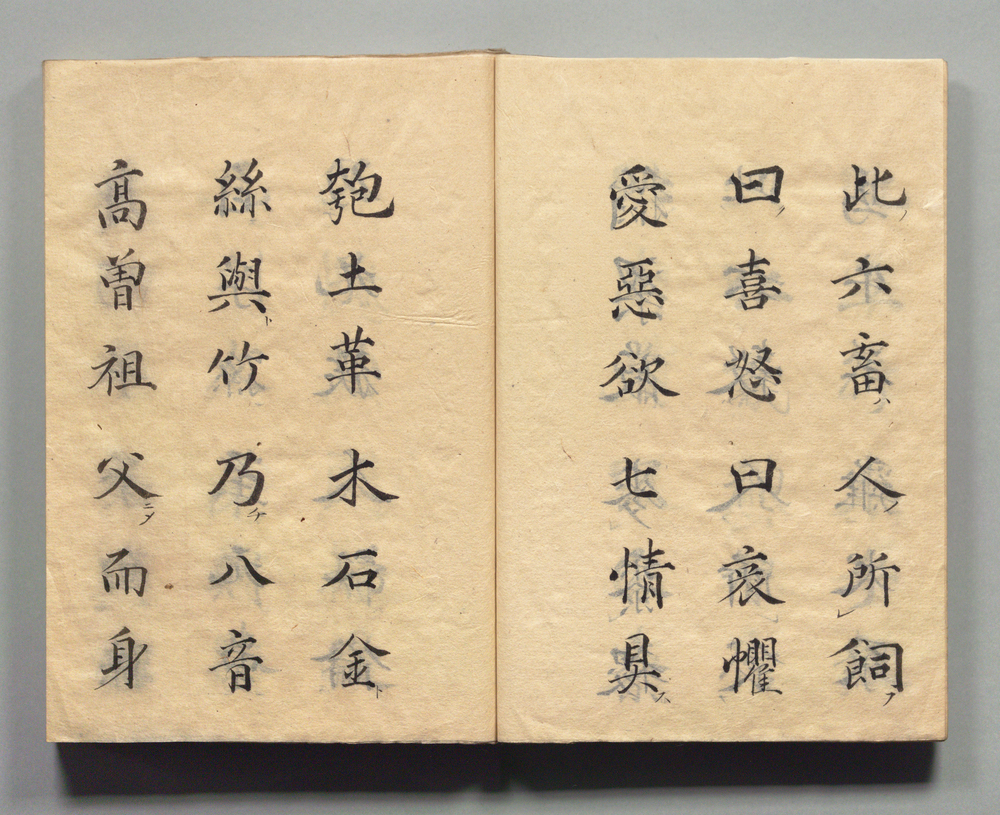 此六畜人所飼
曰喜怒曰哀懼
愛惡欲七情具
匏土革木石金
絲與竹乃八音
髙曽祖父而身